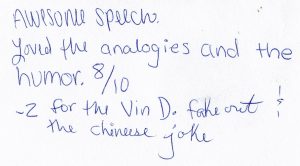 Awesome speech.
Loved the analogies and the
humor. 8/10
-2 for the Vin D. fake out &
the chineese joke